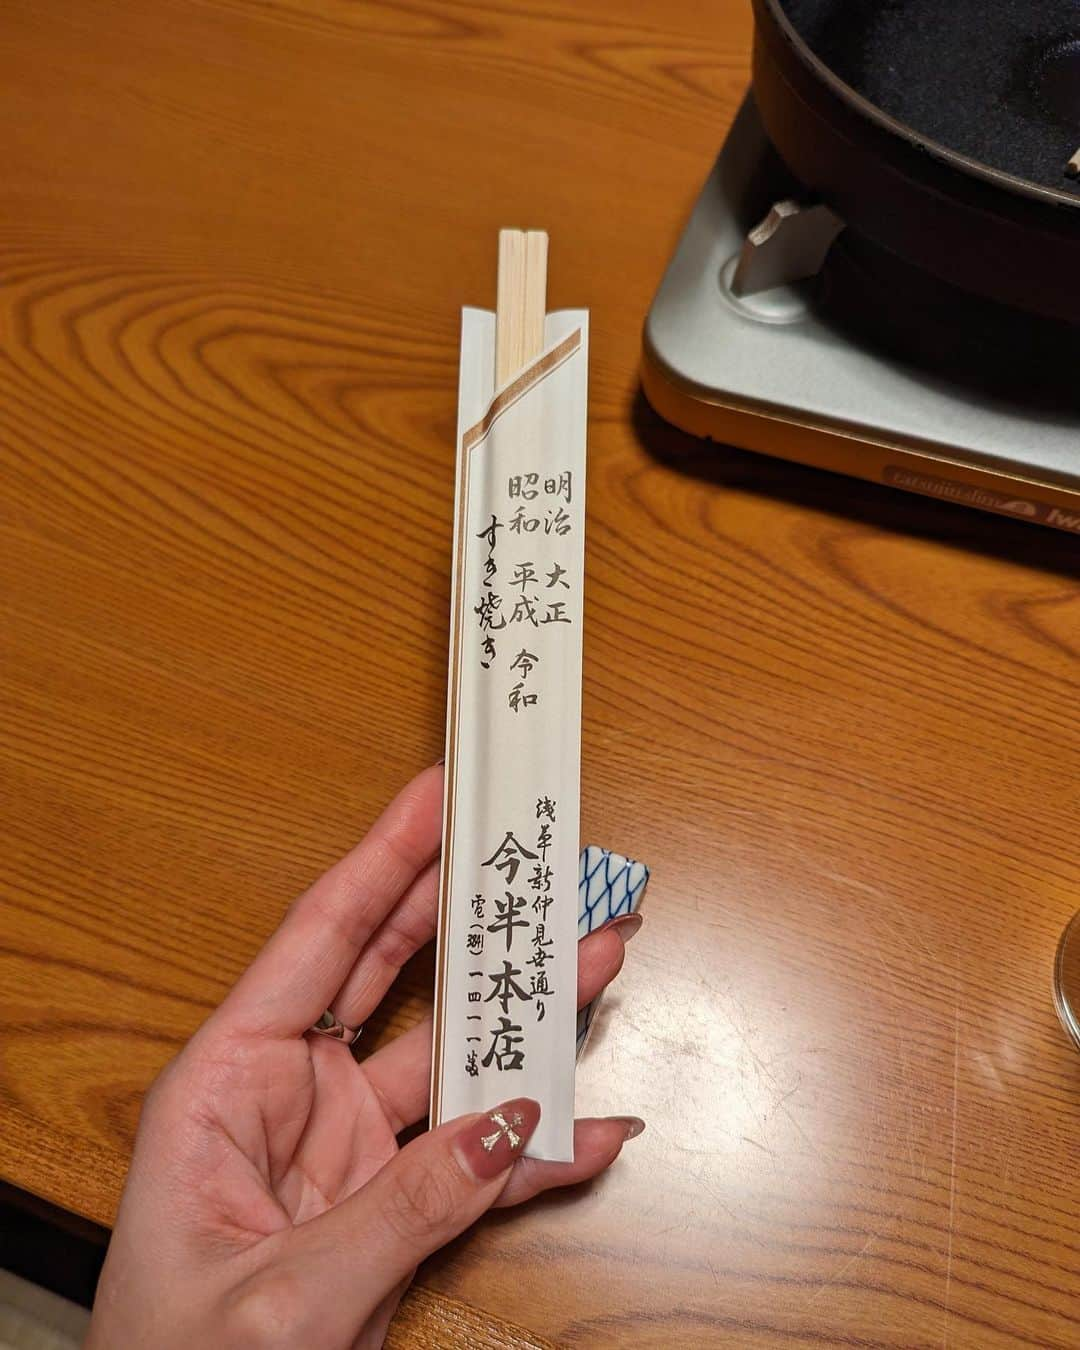 明治 大正
昭和 平成 令和
すき焼き
浅草新仲見世通り
今半本店
電(3841)一四一一番
tatsujin slim
Iwa